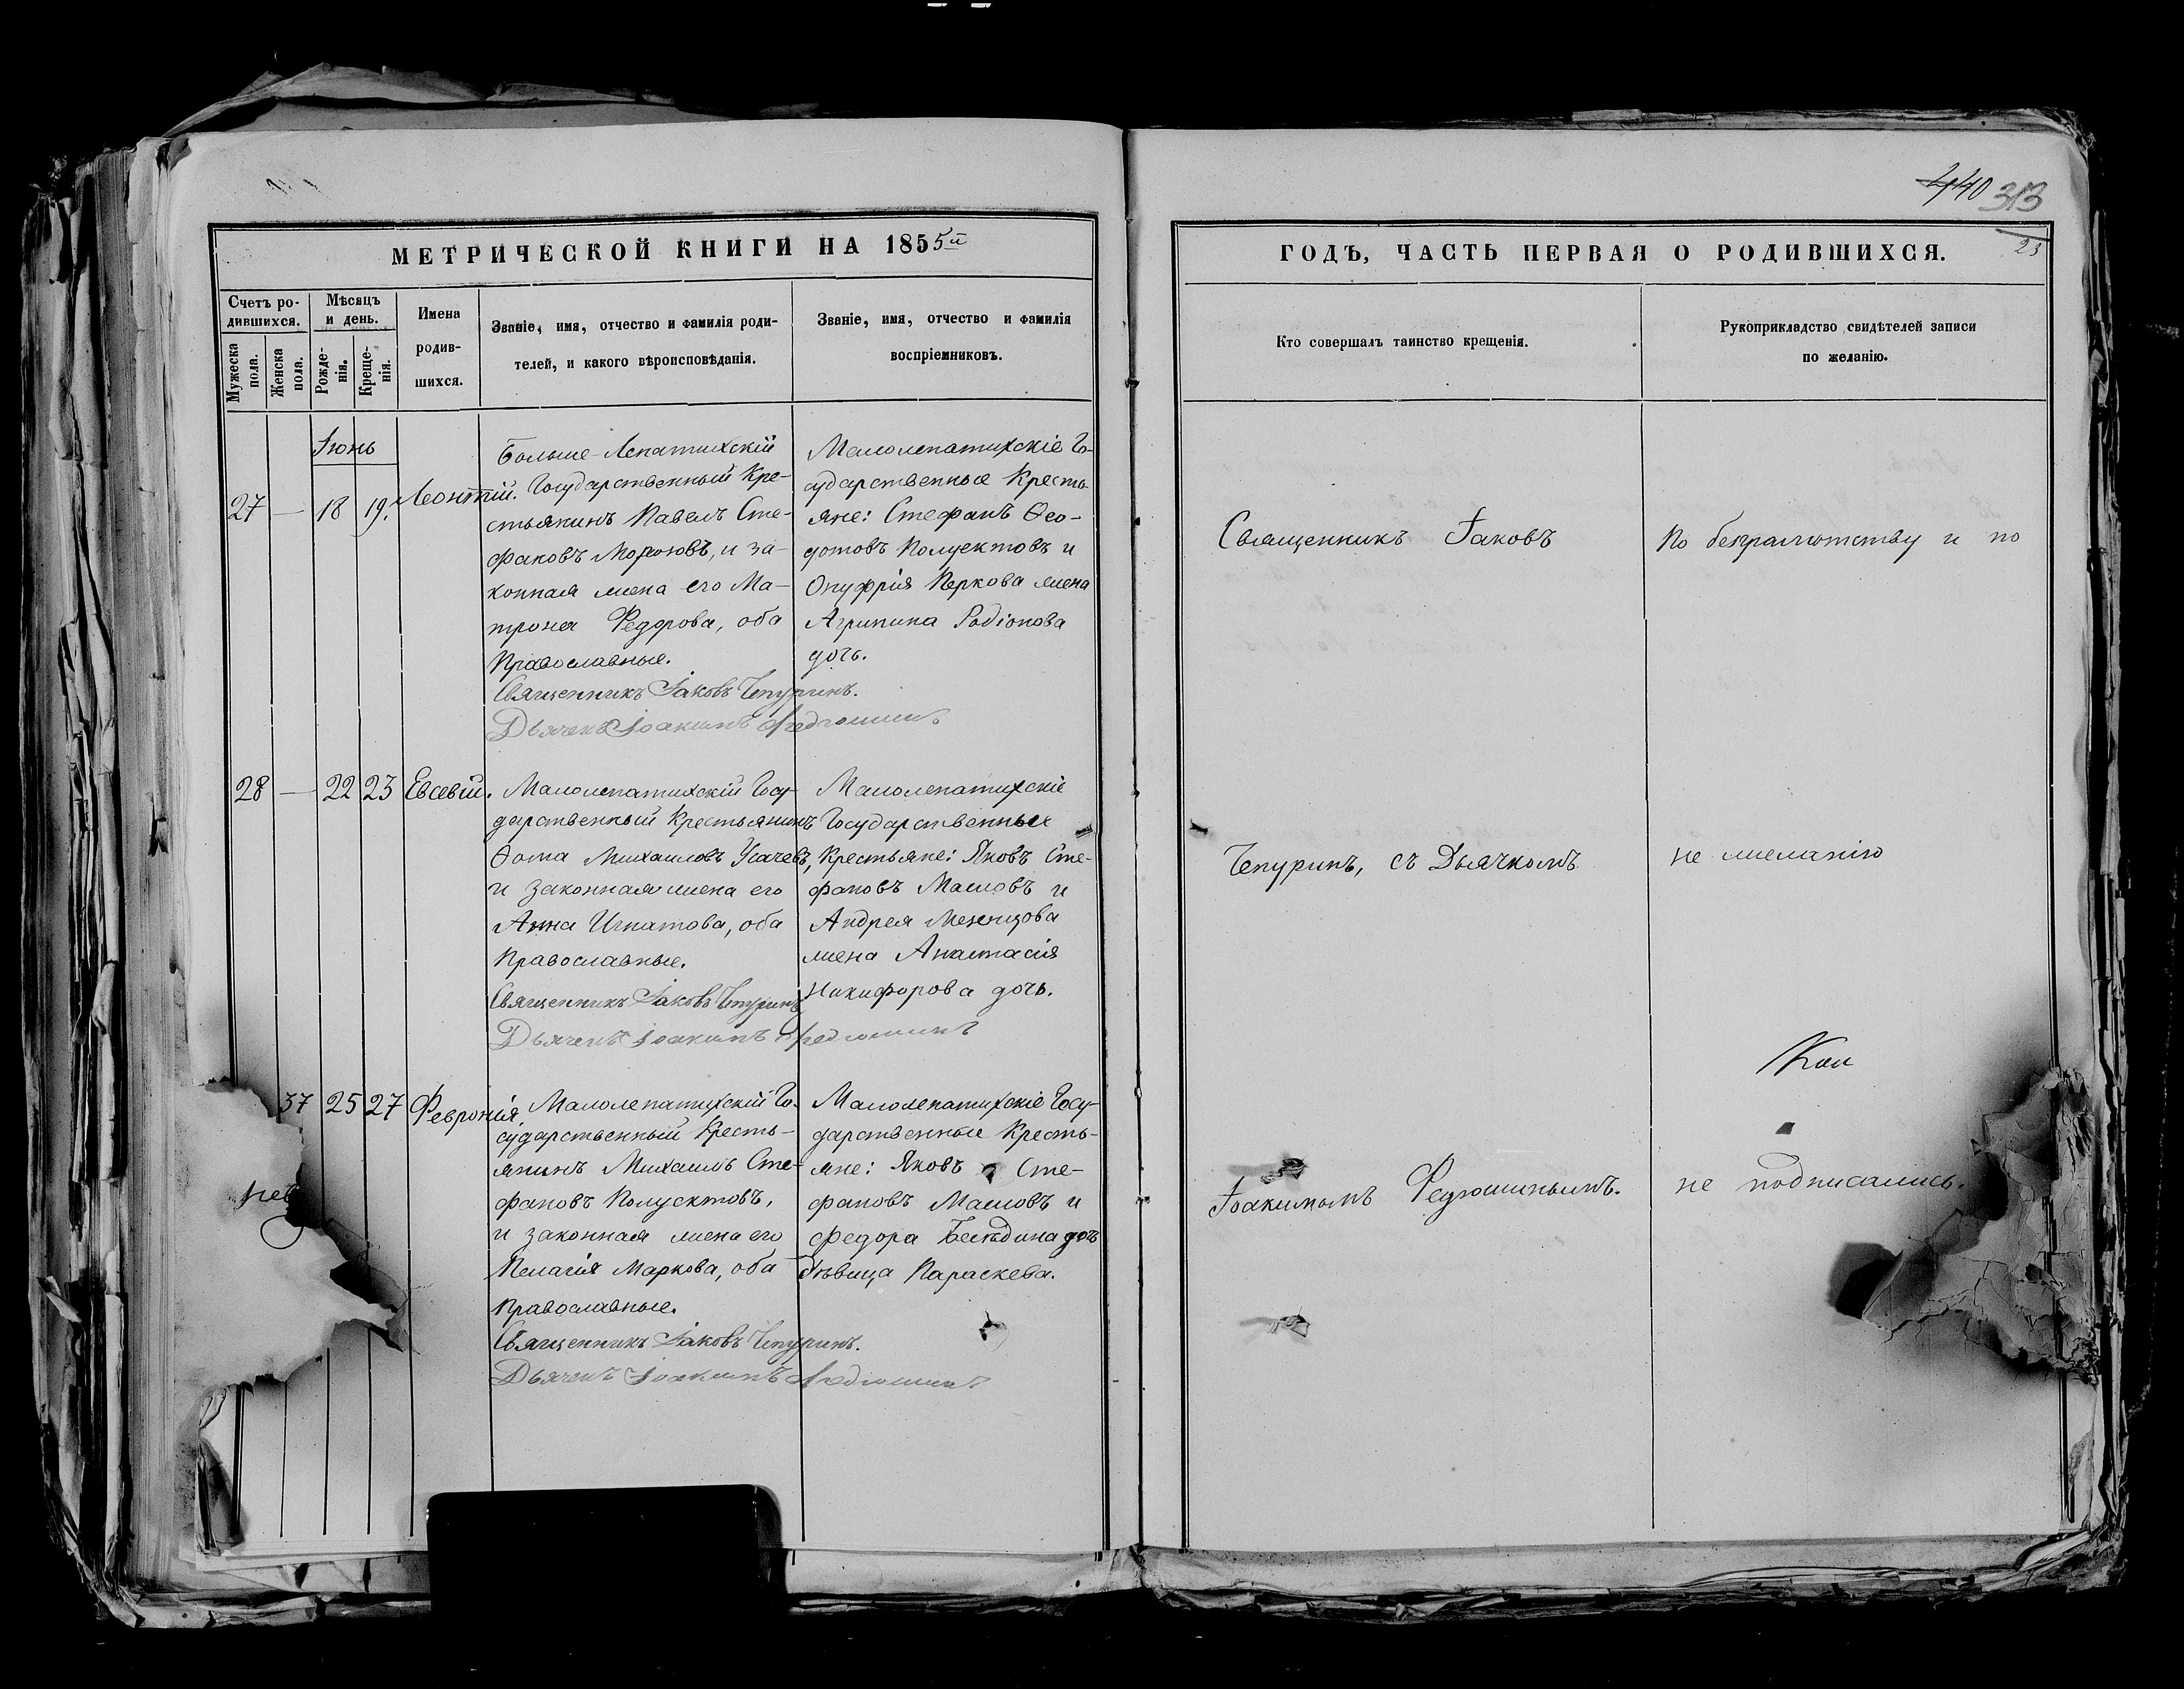 440 313
23
МЕТРИЧЕСКОЙ КНИГИ НА 1855й
ГОДЪ, ЧАСТЬ ПЕРВАЯ О РОДИВШИХСЯ.
Счетъ ро-
дившихся.
Мужеска
пола.
Женска
пола.
Мѣсяцъ
и день.
Рожде-
нія.
Креще-
нія.
Имена
родив-
шихся.
Званіе, имя, отчество и фамилія роди-
телей, и какого вѣроисповѣданія.
Званіе, имя, отчество и фамилія
воспріемниковъ.
Кто совершалъ таинство крещенія.
Рукоприкладство свидѣтелей записи
по желанію.
Іюнь
27 — 18 19. Леонтій.
Больше-Лепатихскій
Государственный Кре-
стьянинъ Павелъ Сте-
фановъ Морозовъ, и за-
конная жена его Ма-
трона Федорова, оба
Православные.
Священникъ Іаковъ Чепуринъ.
Дьячекъ Іоакимъ Федюшинъ
Малолепатихскіе Го-
сударственные Кресть-
яне: Стефанъ Ѳео-
дотовъ Полуектовъ и
Онуфрія Перкова жена
Агрипина Родіонова
дочь.
28 — 22 23 Евсевій.
Малолепатихскій Госу-
дарственный Крестьянинъ
Ѳома Михаиловъ Усачевъ,
и законная жена его
Анна Игнатова, оба
Православные.
Священникъ Іаковъ Чепуринъ
Дьячекъ Іоакимъ Федюшинъ
Малолепатихскіе
Государственные
Крестьяне: Яковъ Сте-
фановъ Масловъ и
Андрея
жена Анастасія
Никифорова дочь.
37 25 27 Февронія.
Малолепатихскій Го-
сударственный Кресть-
янинъ Михаилъ Сте-
фановъ Полуектовъ,
и законная жена его
Пелагія Маркова, оба
Православные.
Священникъ Іаковъ Чепуринъ.
Дьячекъ Іоакимъ Федюшинъ
Малолепатихскіе Госу-
дарственные Кресть-
яне: Яковъ Сте-
фановъ Масловъ и
Федора Бесѣдина дочь
Дѣвица Параскева.
Священникъ Іаковъ
Чепуринъ, съ Дьячкомъ
Іоакимомъ Федюшинымъ.
По безграмотству и по
не желанію
не подписались.